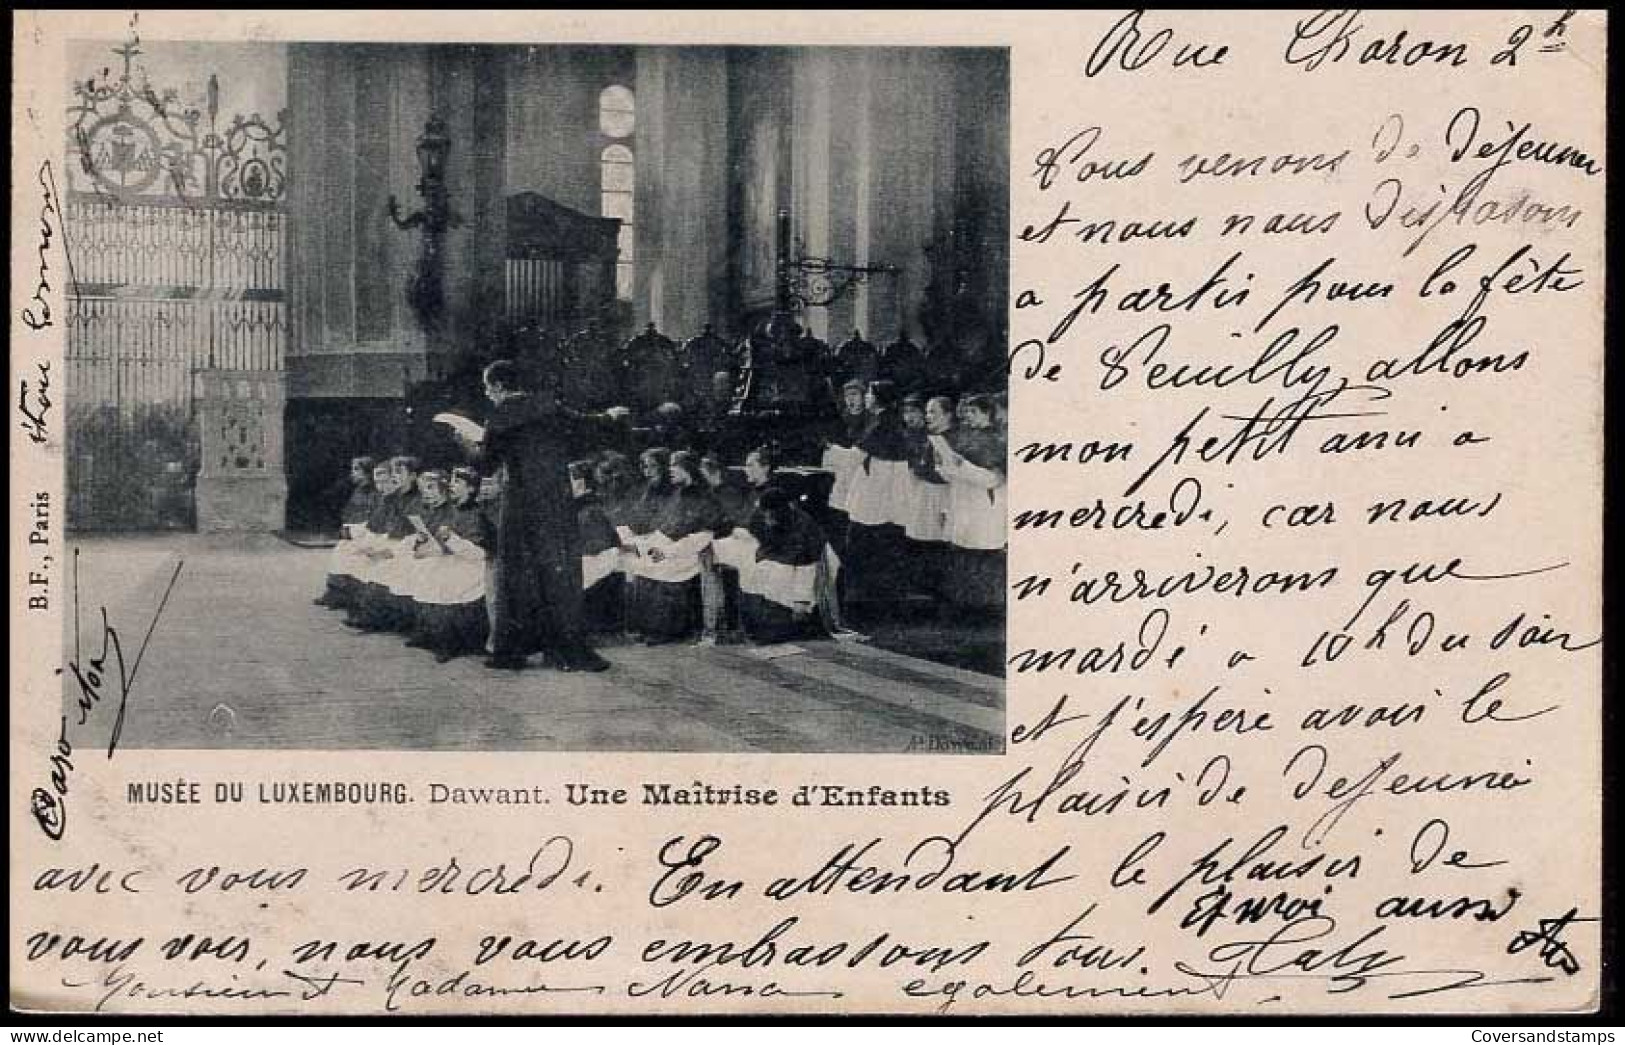 Rue Charon 2h
Nous venons de déjeuner
et nous nous disposons
a partir pour la fête
de Veuilly, allons
mon petit ami a
mercredi, car nous
n'arriverons que
mardé a 10h du soir
et j'espère avoir le
plaisir de dejeuné
avec vous mercredi. En attendant le plaisir de
vous voir, nous vous embrassons tous.
Et moi aussi
Monsieur et Madame Nana également
MUSÉE DU LUXEMBOURG. Dawant. Une Maîtrise d'Enfants
B.F., Paris
At Dawant
CoversandStamps